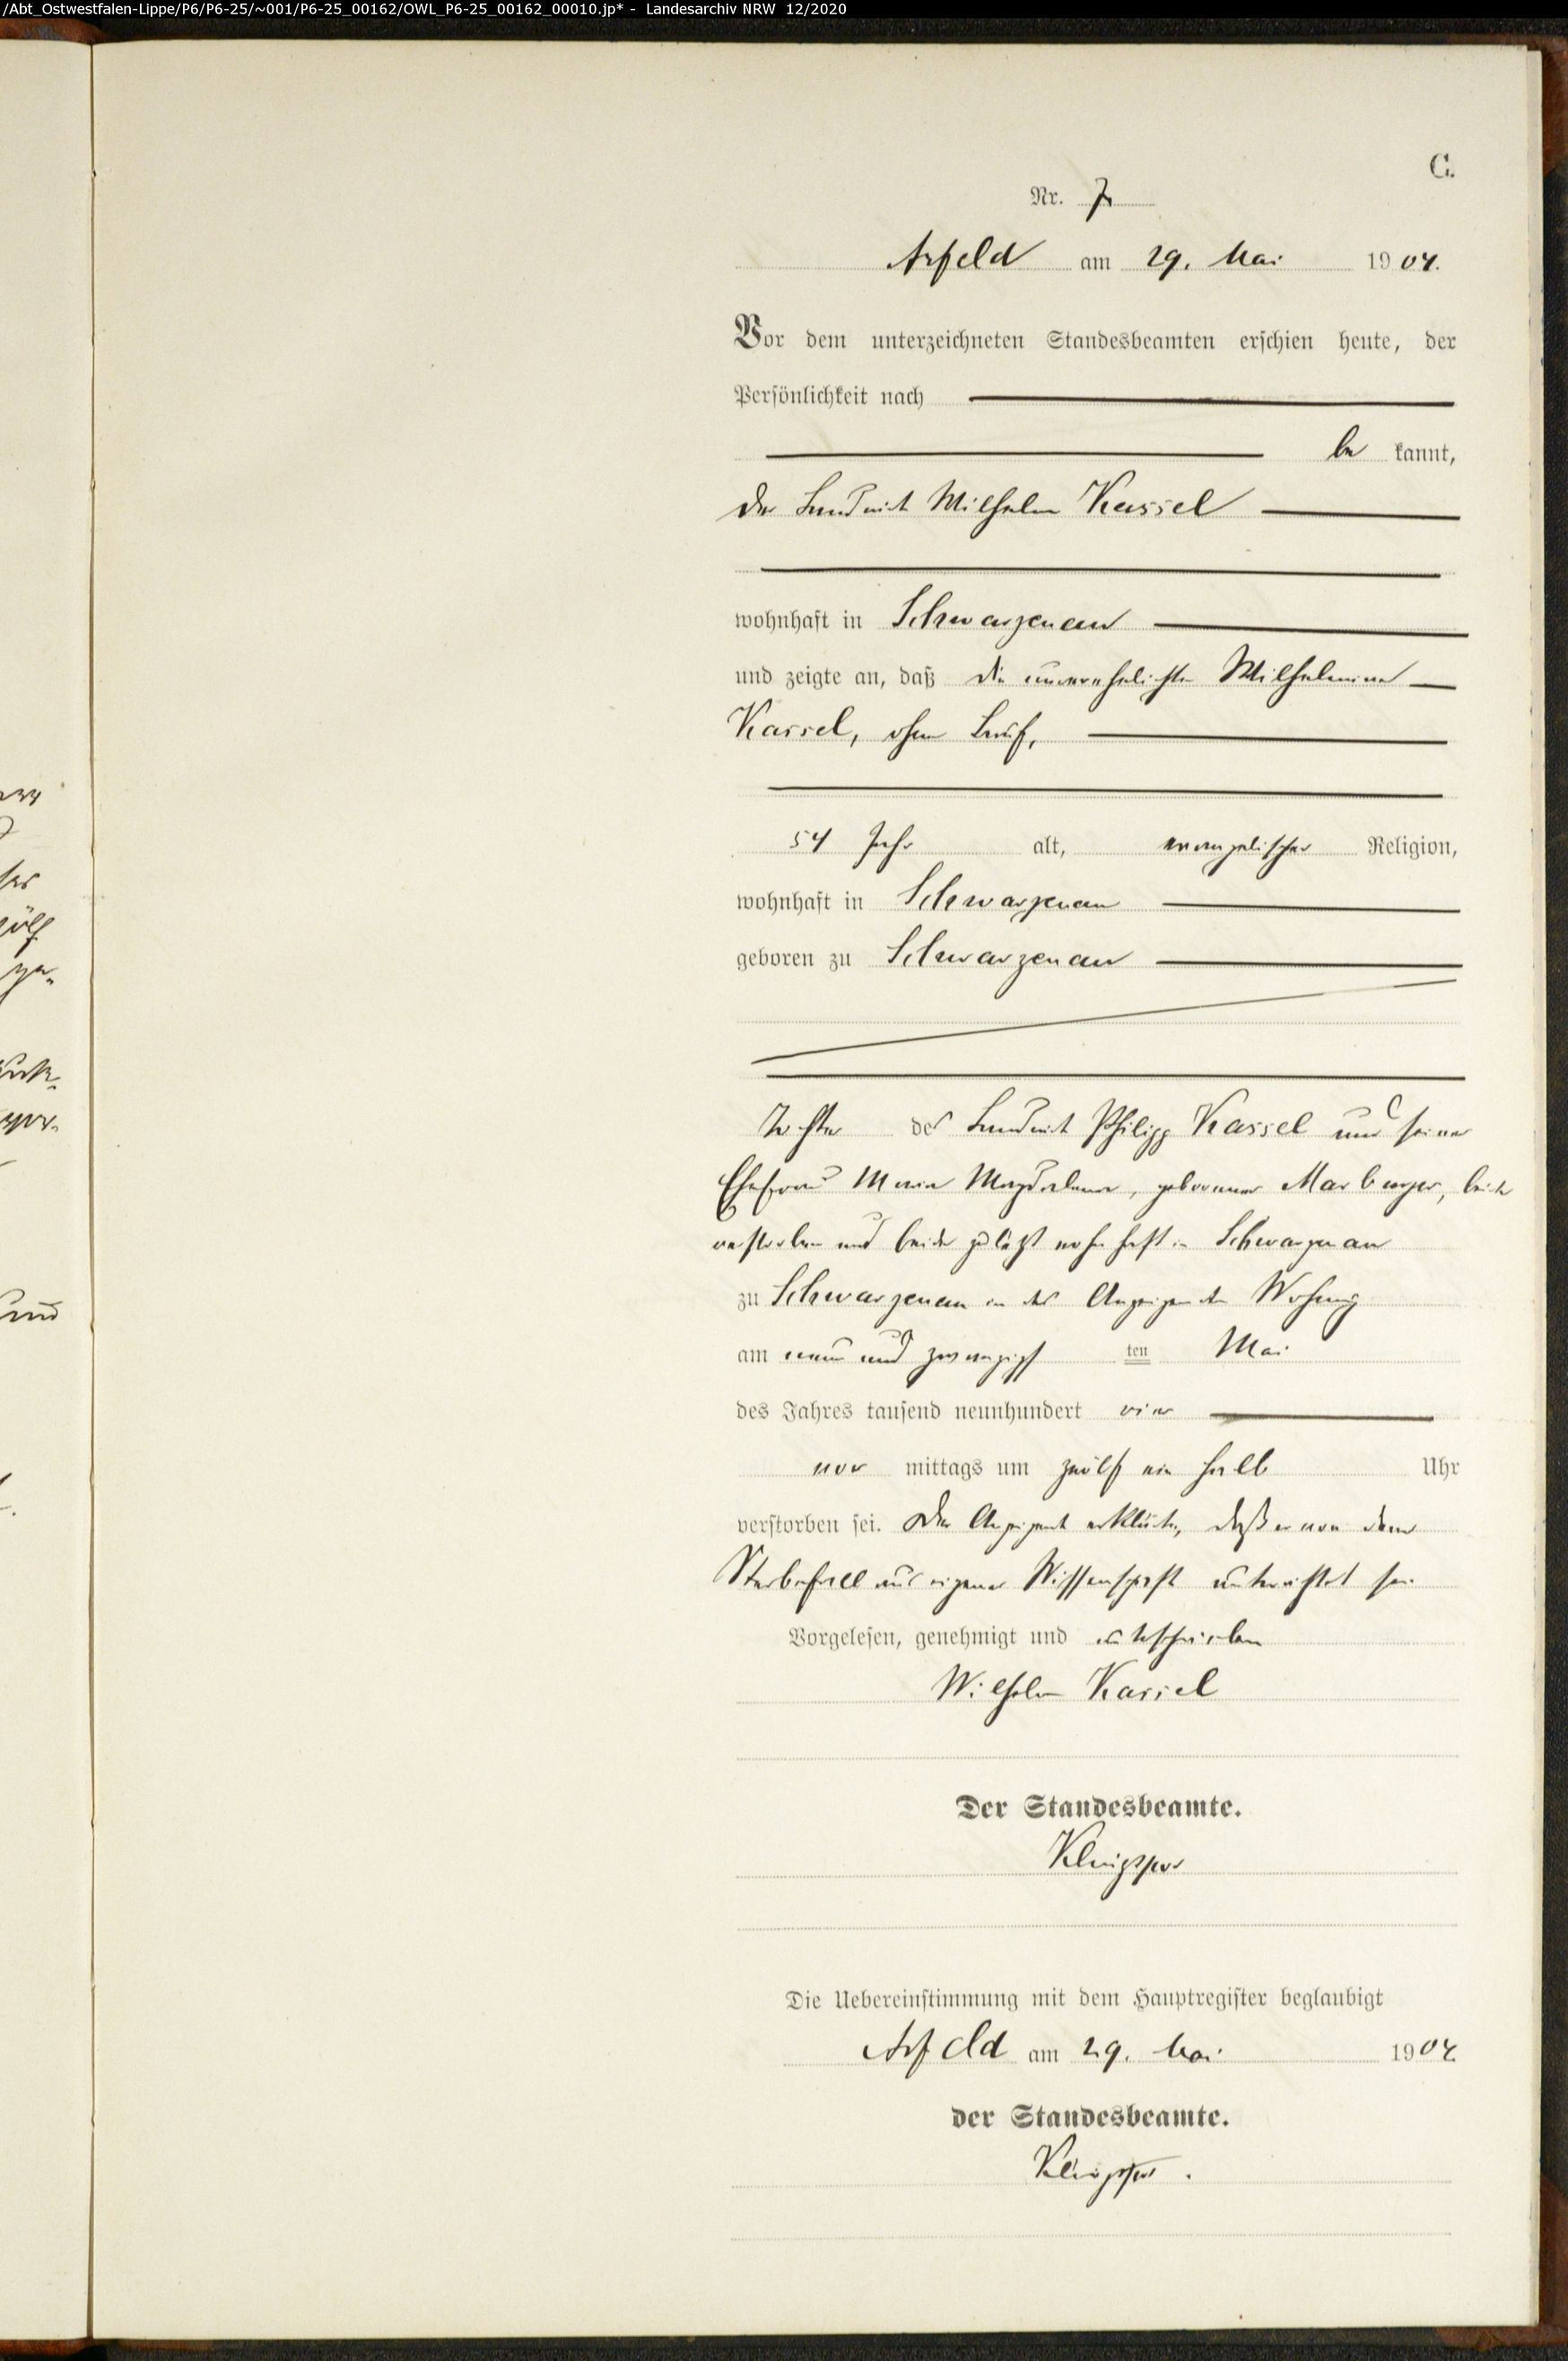 /Abt_Ostwestfalen-Lippe/P6/P6-25/~001/P6-25_00162/OWL_P6-25_00162_00010.jp* - Landesarchiv NRW 12/2020
C.
Nr. 7
Arfeld am 29. Mai 1904.
Vor dem unterzeichneten Standesbeamten erschien heute, der
Persönlichkeit nach
be kannt,
der Landwirt Wilhelm Kassel
wohnhaft in Schwarzenau
und zeigte an, daß die unverehelichte Wilhelmine
Kassel, ohne Beruf,
54 Jahr alt, evangelischer Religion,
wohnhaft in Schwarzenau
geboren zu Schwarzenau
Tochter des Landwirt Philipp Kassel und seiner
Ehefrau Maria Magdalena, geborener Marburger, beide
verstorben und beide zuletzt wohnhaft in Schwarzenau
zu Schwarzenau in des Anzeigenden Wohnung
am neun und zwanzigst ten Mai
des Jahres tausend neunhundert vier
vor mittags um zwölf ein halb Uhr
verstorben sei. Der Anzeigende erklärte, daß er von dem
Sterbefall aus eigener Wissenschaft unterrichtet sei
Vorgelesen, genehmigt und unterschrieben
Wilhelm Kassel
Der Standesbeamte.
Klingspor
Die Uebereinstimmung mit dem Hauptregister beglaubigt
Arfeld am 29. Mai 1904
der Standesbeamte.
Klingspor.